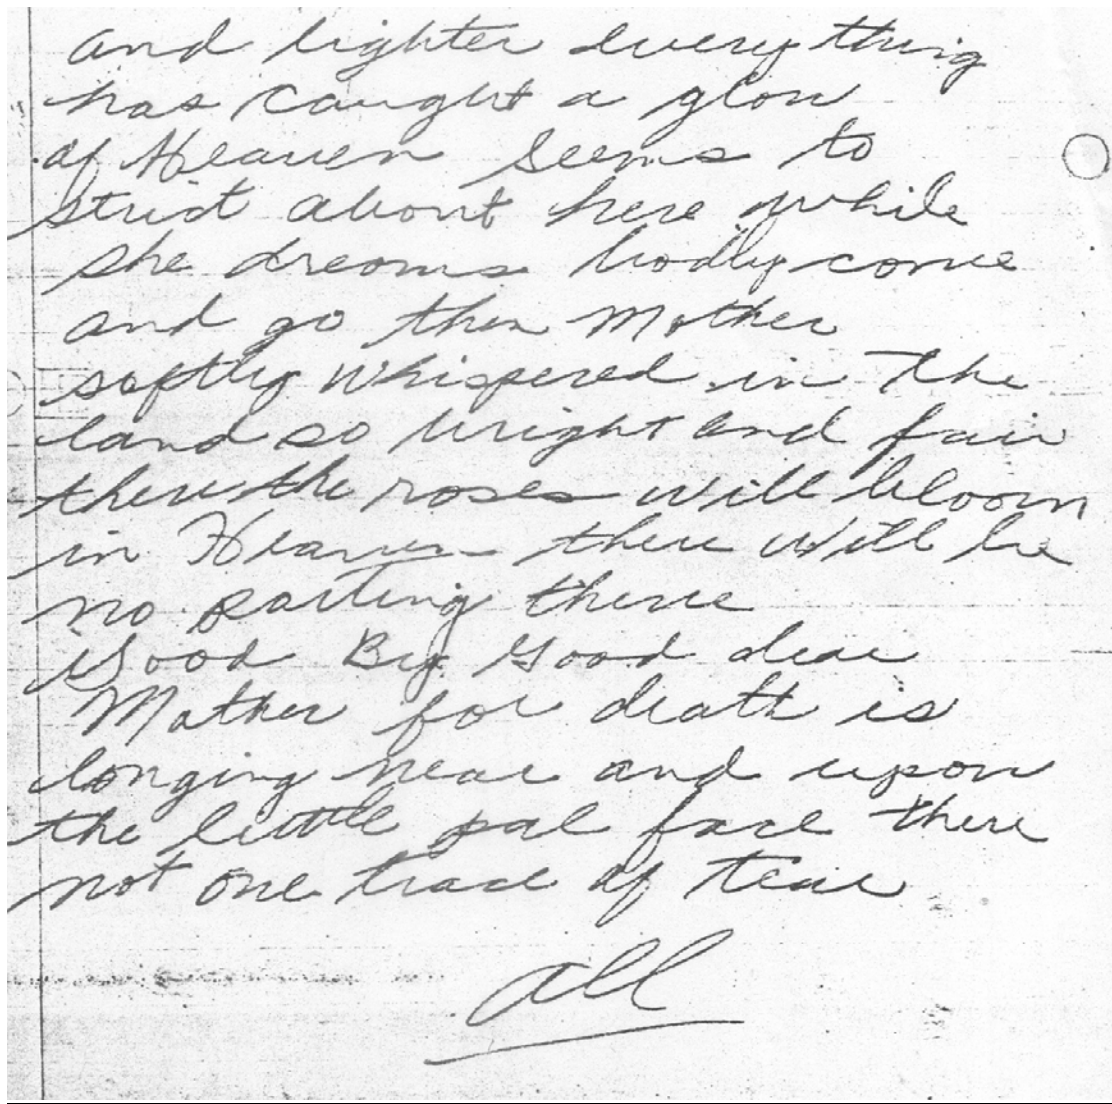 and lighter every thing
has caught a glow
of Heaven seems to
about here while
she dreoms bodly come
and go then Mother
softly whispered in the
land so bright and fair
there the roses will bloom
in Heaven there will be
no parting there
Good By Good dear
Mother for death is
longing near and upon
the little pal face there
not one trace of tear
all